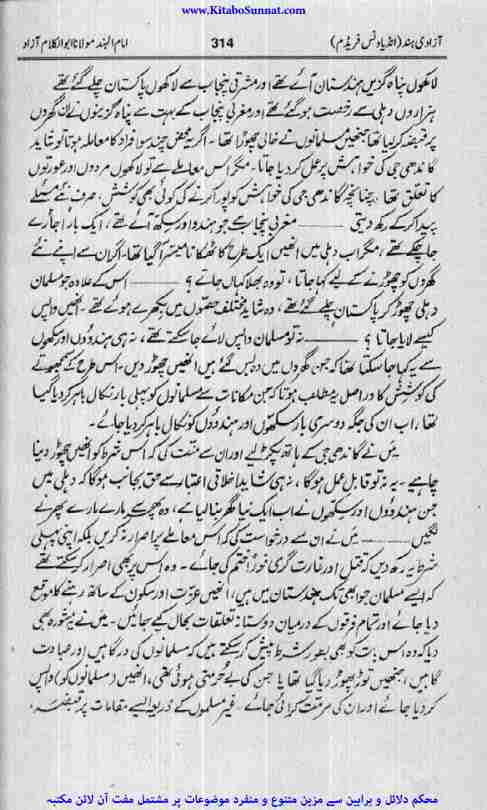 www.KitaboSunnat.com
آزادیٔ ہند (انڈیا ونس فریڈم) 314 امام الہند مولانا ابوالکلام آزاد
لاکھوں پناہ گزیں ہندستان آئے تھے اور مشرقی پنجاب سے لاکھوں پاکستان چلے گئے تھے
ہزاروں دہلی سے رخصت ہو گئے تھے اور مغربی پنجاب کے بہت سے پناہ گزینوں نے ان گھروں
پر قبضہ کر لیا تھا جنھیں مسلمانوں نے خالی چھوڑا تھا۔ اگر یہ محض چند سو افراد کا معاملہ ہوتا تو شاید
گاندھی جی کی خواہش پر عمل کر دیا جاتا۔ مگر اس معاملے سے تو لاکھوں مردوں اور عورتوں
کا تعلق تھا، چنانچہ گاندھی جی کی خواہش کو پورا کرنے کی کوئی بھی کوشش، صرف نئے مسئلے
پیدا کر کے رکھ دیتی ——— مغربی پنجاب سے جو ہندو اور سکھ آئے تھے، ایک بار اجاڑے
جا چکے تھے، مگر اب دہلی میں انھیں ایک طرح کا ٹھکانا میسر آ گیا تھا۔ اگر ان سے اپنے نئے
گھروں کو چھوڑنے کے لیے کہا جاتا، تو وہ بھلا کہاں جاتے؟ ——— اس کے علاوہ جو مسلمان
دہلی چھوڑ کر پاکستان چلے گئے تھے، وہ شاید مختلف حصّوں میں بکھرے ہوئے تھے، انھیں واپس
کیسے لایا جاتا؟ ——— نہ تو مسلمان واپس لائے جا سکتے تھے، نہ ہی ہندوؤں اور سکھوں
سے یہ کہا جا سکتا تھا کہ جن گھروں میں وہ بس گئے ہیں انھیں چھوڑ دیں۔ اس طرح کے سمجھوتے
کی کوشش کا در اصل یہ مطلب ہوتا کہ جن مکانات سے مسلمانوں کو پہلی بار نکال باہر کر دیا گیا
تھا، اب ان کی جگہ دوسری بار سکھوں اور ہندوؤں کو نکال باہر کر دیا جائے۔
میں نے گاندھی جی کے ہاتھ پکڑ لیے اور ان سے منت کی کہ اس شرط کو انھیں چھوڑ دینا
چاہیے۔ یہ نہ تو قابلِ عمل ہوگا، نہ ہی شاید اخلاقی اعتبار سے حق بجانب ہوگا کہ دہلی میں
جن ہندوؤں اور سکھوں نے اب ایک نیا گھر بنا لیا ہے، وہ پھر سے مارے مارے پھرنے
لگیں ——— میں نے ان سے درخواست کی کہ اس معاملے پر اصرار نہ کریں بلکہ اپنی پہلی
شرط یہ رکھ دیں کہ قتل اور غارت گری فوراً ختم کی جائے۔ وہ اس پر بھی اصرار کر سکتے تھے
کہ ایسے مسلمان جو ابھی تک ہندستان میں ہیں، انھیں عزت اور سکون کے ساتھ رہنے کا موقع
دیا جائے اور تمام فرقوں کے درمیان دوستانہ تعلقات بحال کیے جائیں۔ میں نے یہ مشورہ بھی
دیا کہ وہ اس بات کو بھی بطور شرط پیش کر سکتے ہیں کہ مسلمانوں کی درگاہیں اور عبادت
گاہیں، جنھیں توڑ پھوڑ دیا گیا تھا یا جن کی بے حرمتی ہوئی تھی، انھیں (مسلمانوں کو) واپس
کر دیا جائے اور ان کی مرمت کرائی جائے۔ غیر مسلموں کے ذریعہ ایسے مقامات پر قبضہ،
محکم دلائل و براہین سے مزین متنوع و منفرد موضوعات پر مشتمل مفت آن لائن مکتبہ